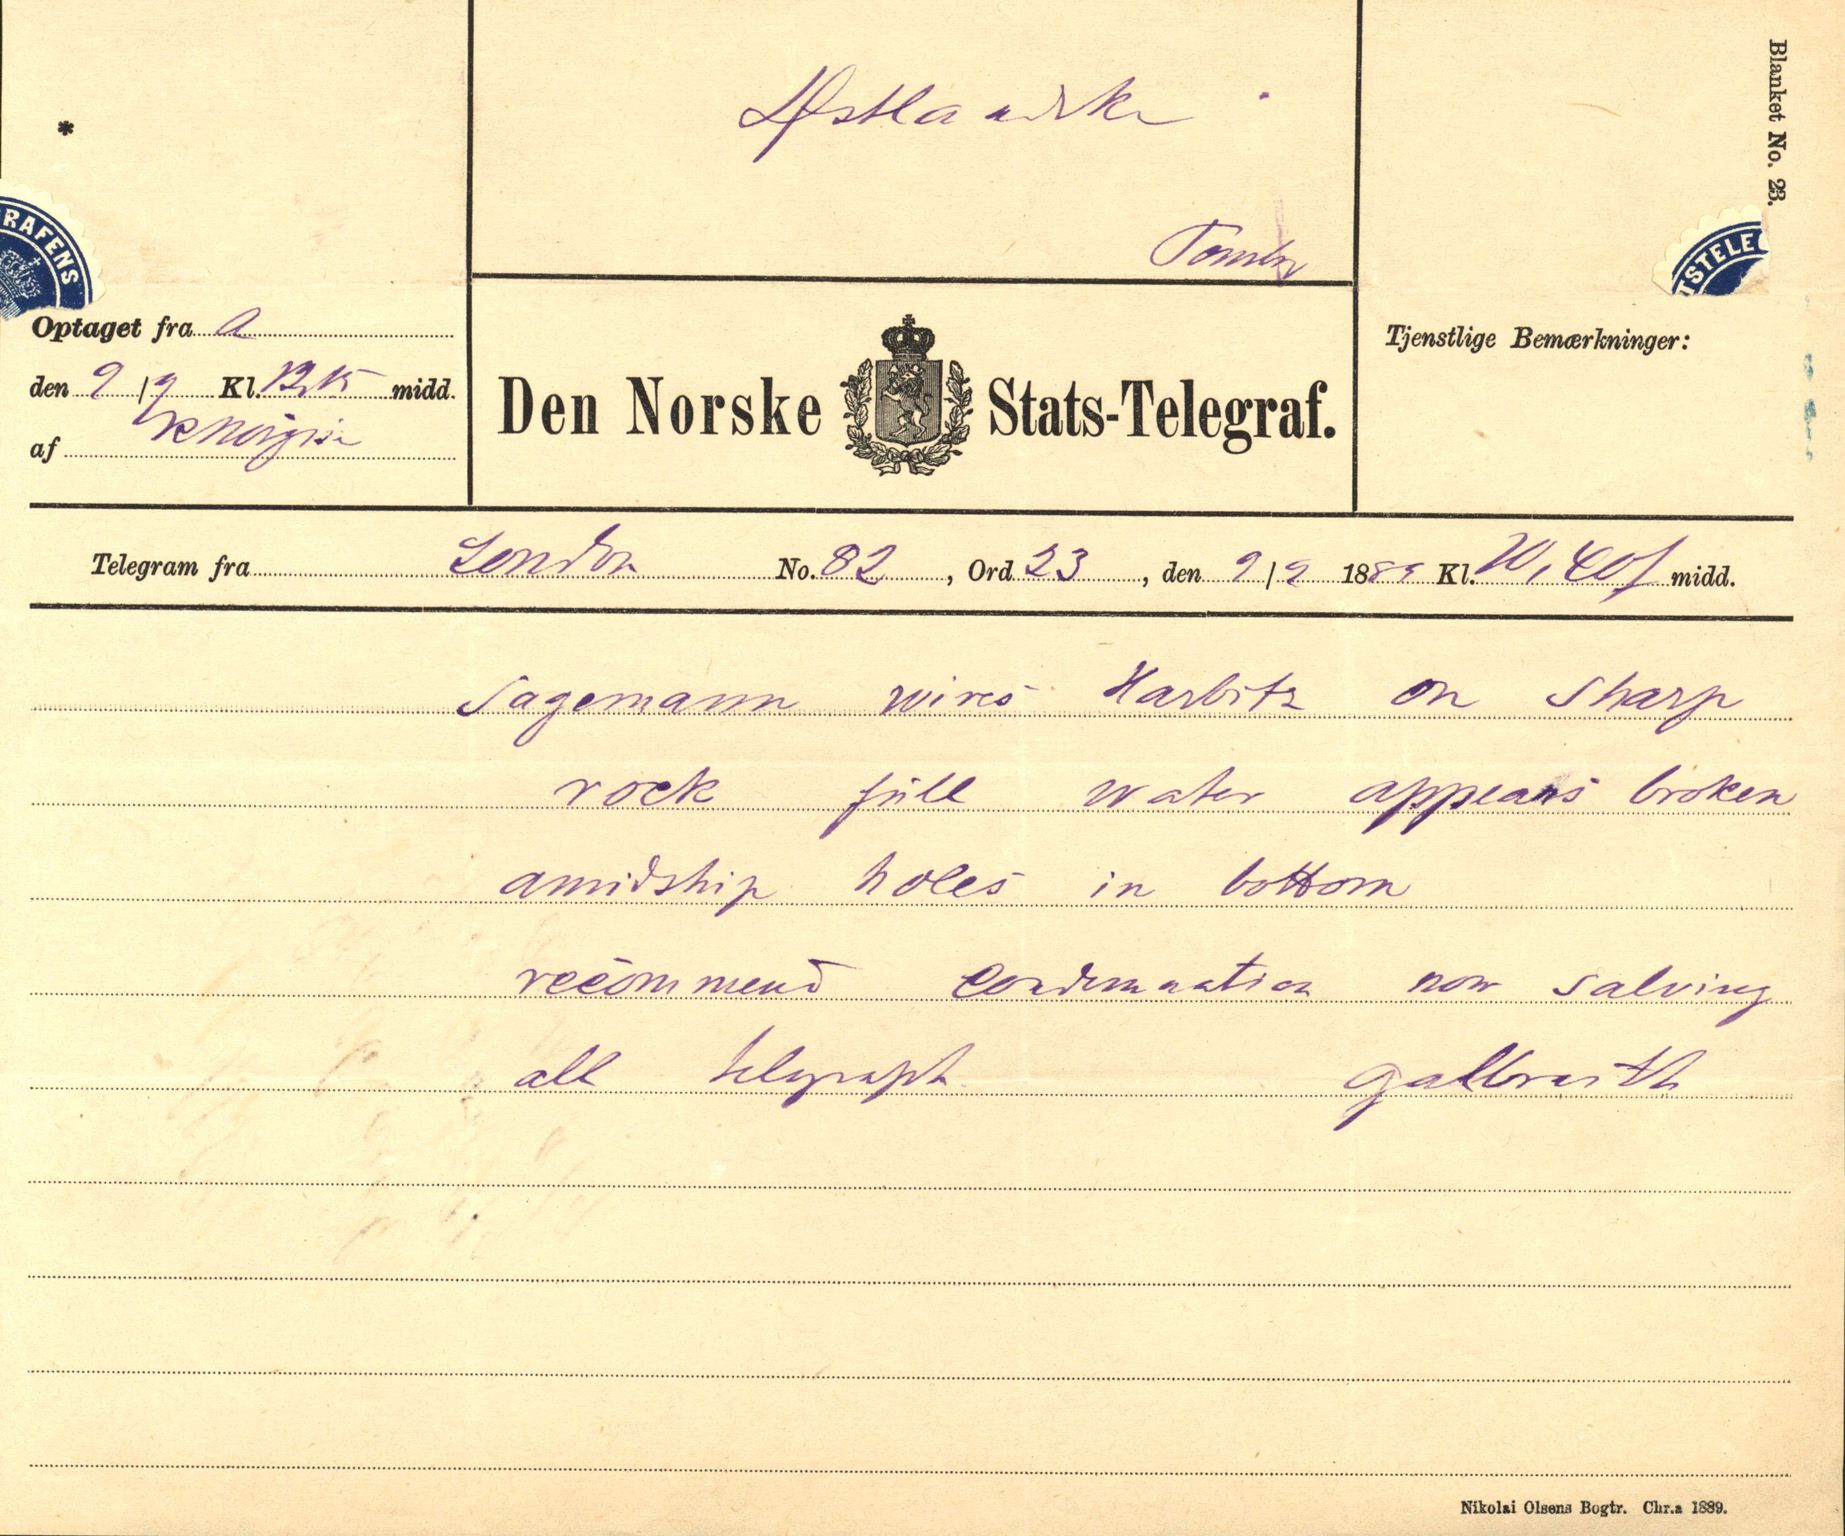 *
Blanket No. 23.
RAFENS
TSTELE
Tønsberg
Optaget fra a
den 9/9 Kl. 12,15 midd.
af
Den Norske Stats-Telegraf.
Tjenstlige Bemærkninger:
Telegram fra London No. 82, Ord 23, den 9/9 1889 Kl. 10,40 f midd.
Sagemann wires Harbitz on sharp
rock full water appears broken
amidship holes in bottom
recommend condemnation now salving
all telegraph galbraith
Nikolai Olsens Bogtr. Chr.a 1889.